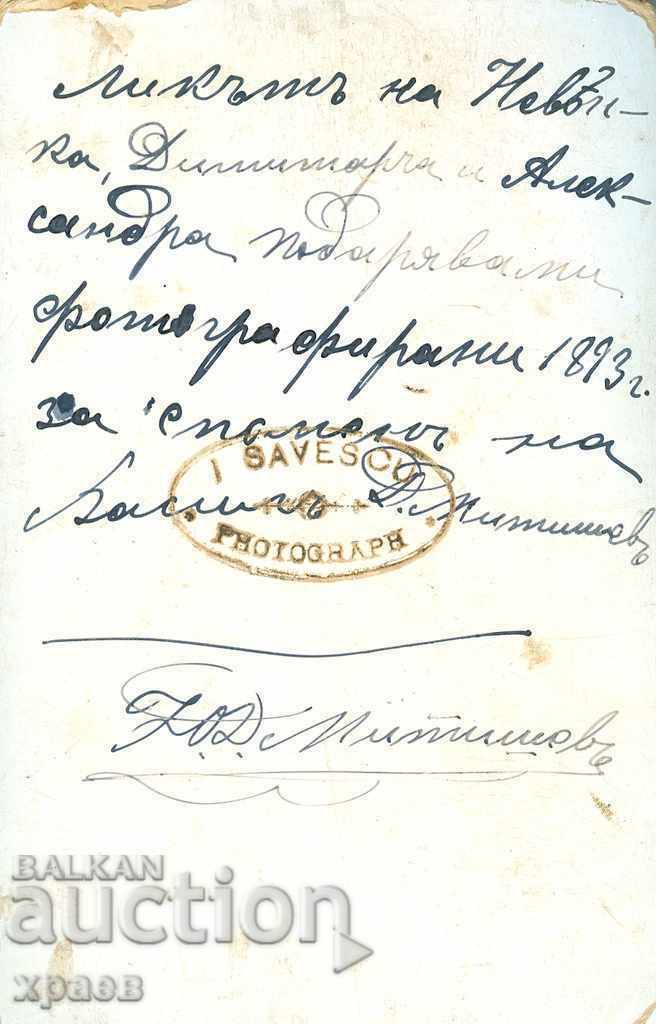 Ликътъ на Невѣн-
ка, Димитърча и Алек-
сандра подарявами
фотографирани 1893 г.
за споменъ на
I SAVESCU
Василъ Д. Митишевъ
PHOTOGRAPH
Ю Д Митишевъ
BALKAN
auction
храев